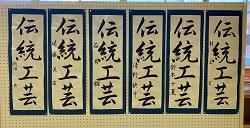 伝統工芸
伝統工芸
伝統工芸
伝統工芸
伝統工芸
伝統工芸